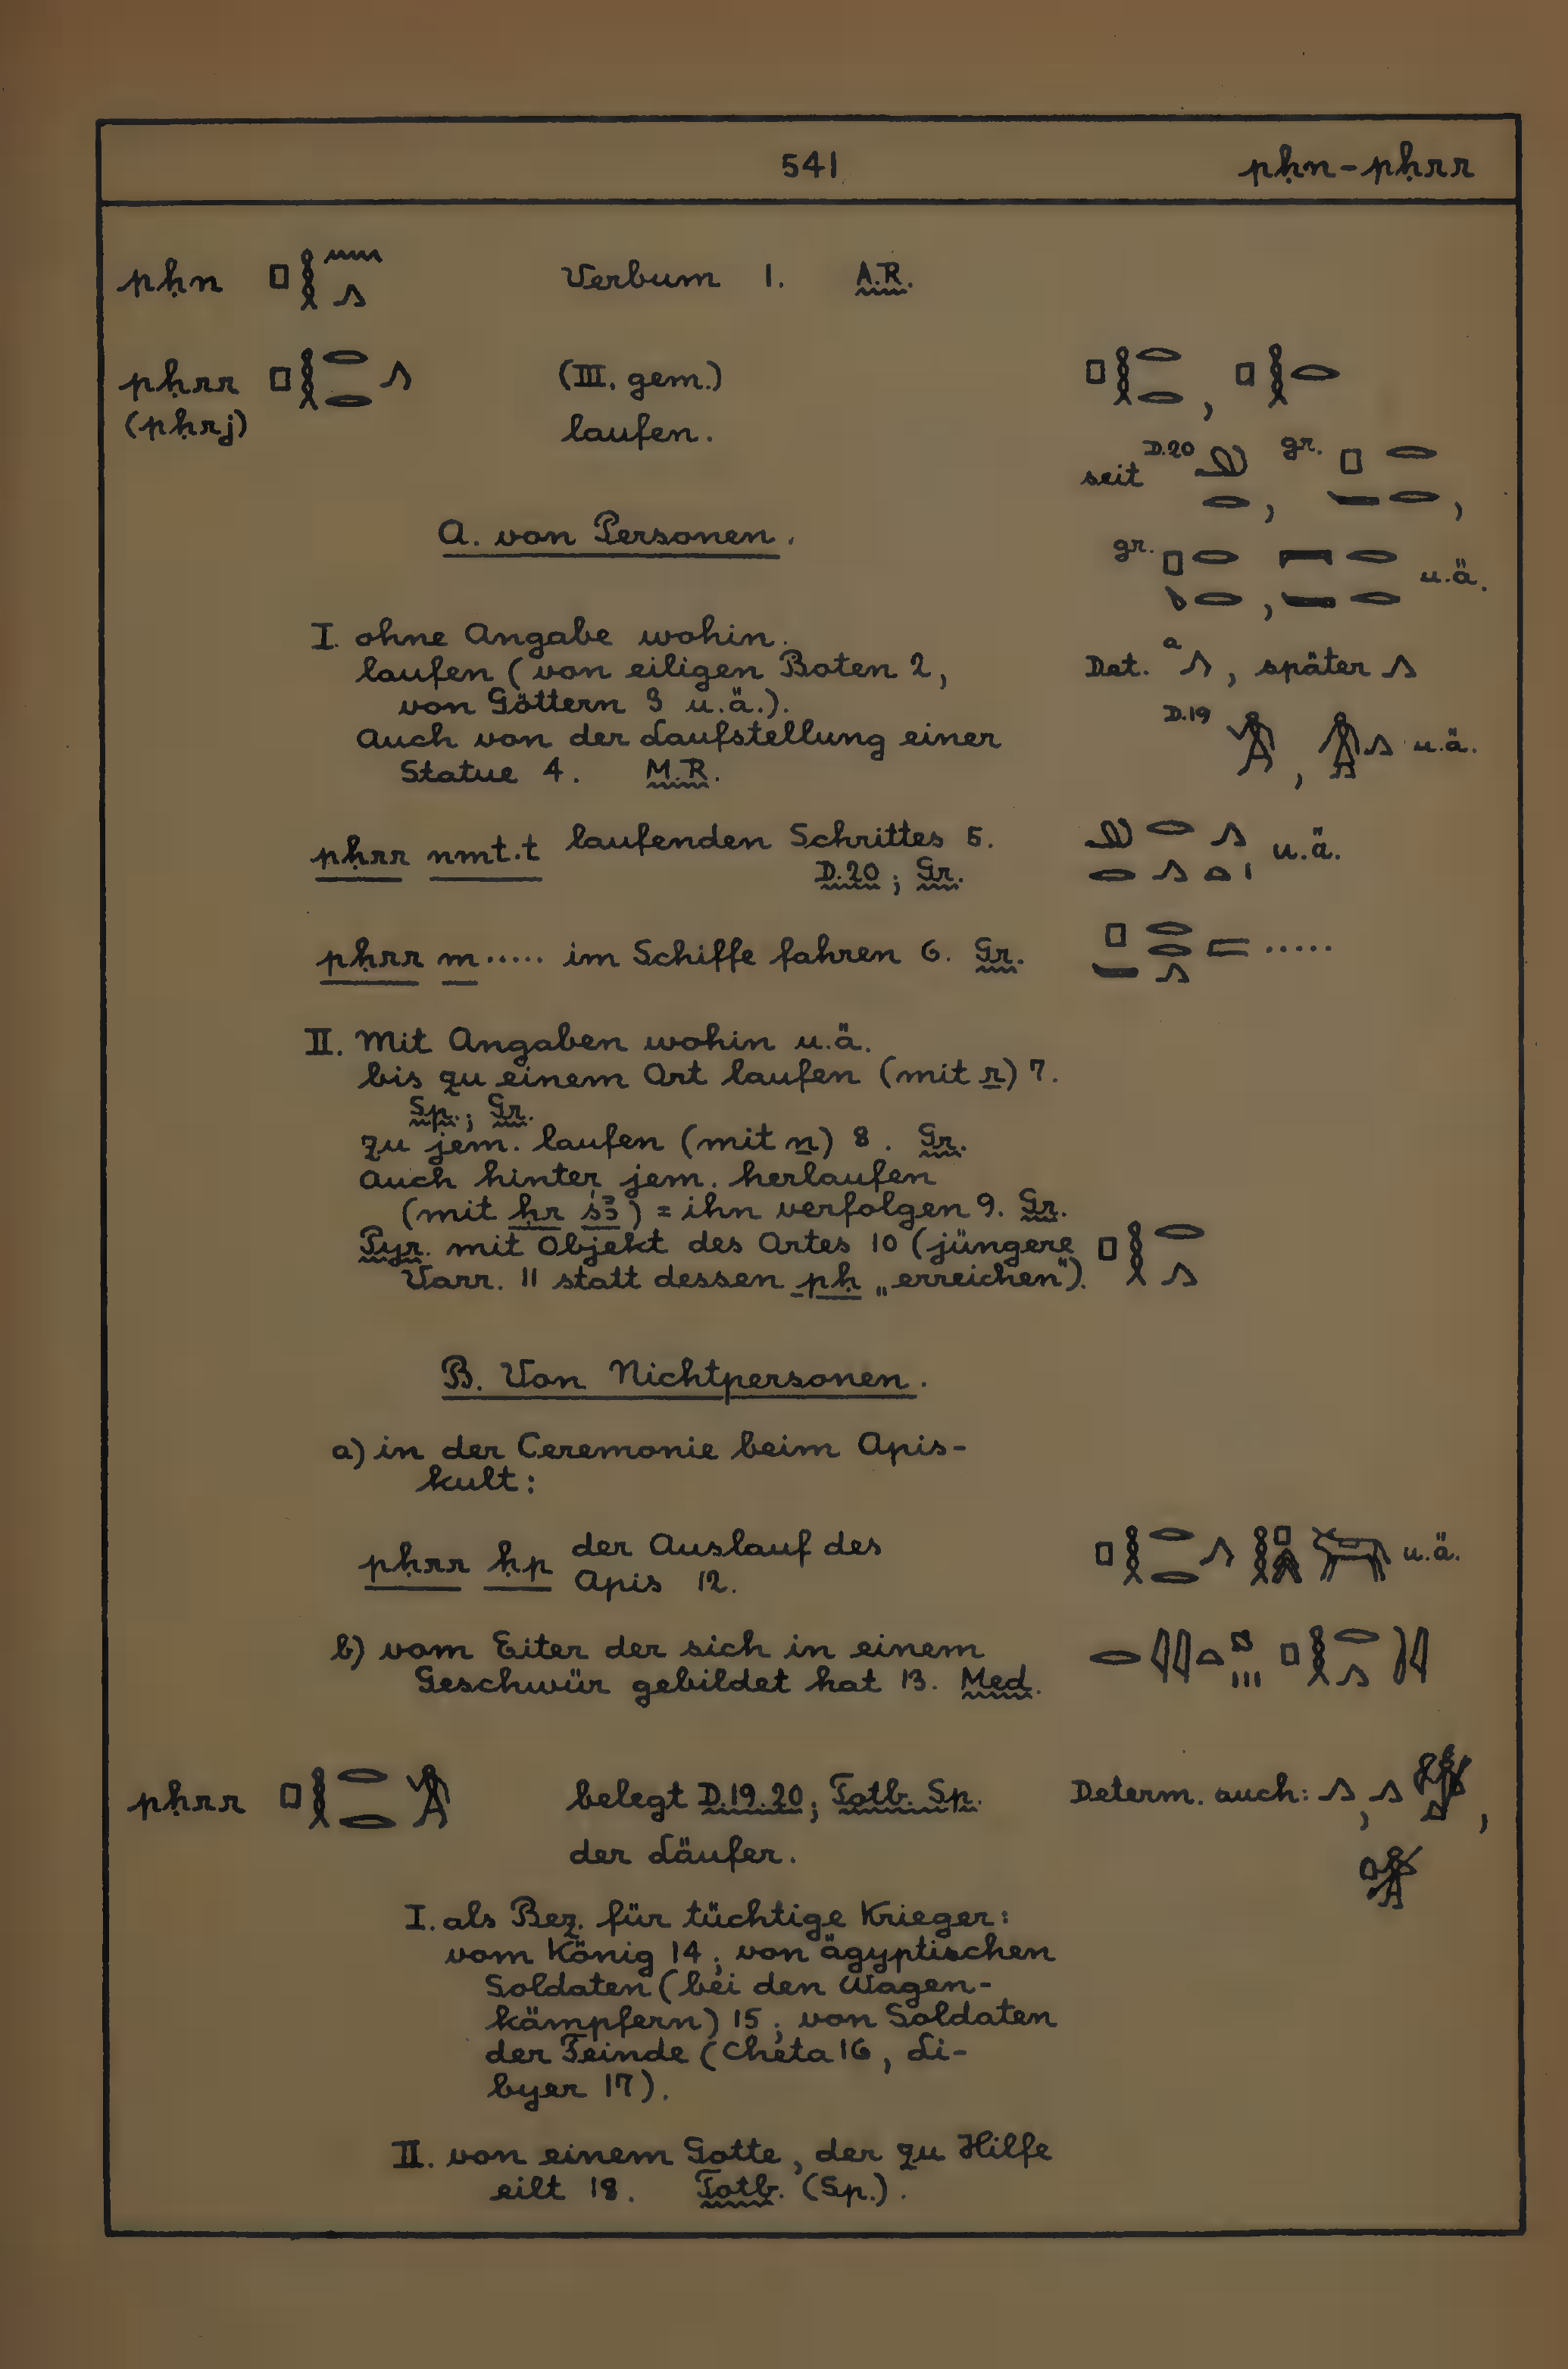 541 pḥn-pḥrr
pḥn Verbum 1. A.R.
pḥrr (III. gem.)
(pḥrj) laufen.
seit D.20 gr.
A. von Personen.
gr. u.ä.
I. ohne Angabe wohin.
laufen (von eiligen Boten 2, Det. a , später
von Göttern 3 u.ä.).
D.19 u.ä.
Auch von der Laufstellung einer
Statue 4. M.R.
pḥrr nmt.t laufenden Schrittes 5. u.ä.
D.20; Gr.
pḥrr m..... im Schiffe fahren 6. Gr. .....
II. Mit Angaben wohin u.ä.
bis zu einem Ort laufen (mit r) 7.
Sp.; Gr.
zu jem. laufen (mit n) 8. Gr.
Auch hinter jem. herlaufen
(mit ḥr s3) = ihn verfolgen 9. Gr.
Pyr. mit Objekt des Ortes 10 (jüngere
Varr. 11 statt dessen pḥ „erreichen").
B. Von Nichtpersonen.
a) in der Ceremonie beim Apis-
kult:
pḥrr ḥp der Auslauf des
Apis 12. u.ä.
b) vom Eiter der sich in einem
Geschwür gebildet hat 13. Med.
pḥrr belegt D.19.20; Totb. Sp. Determ. auch:
der Läufer.
I. als Bez. für tüchtige Krieger:
vom König 14; von ägyptischen
Soldaten (bei den Wagen-
kämpfern) 15; von Soldaten
der Feinde (Cheta 16, Li-
byer 17).
II. von einem Gotte, der zu Hilfe
eilt 18. Totb. (Sp.).